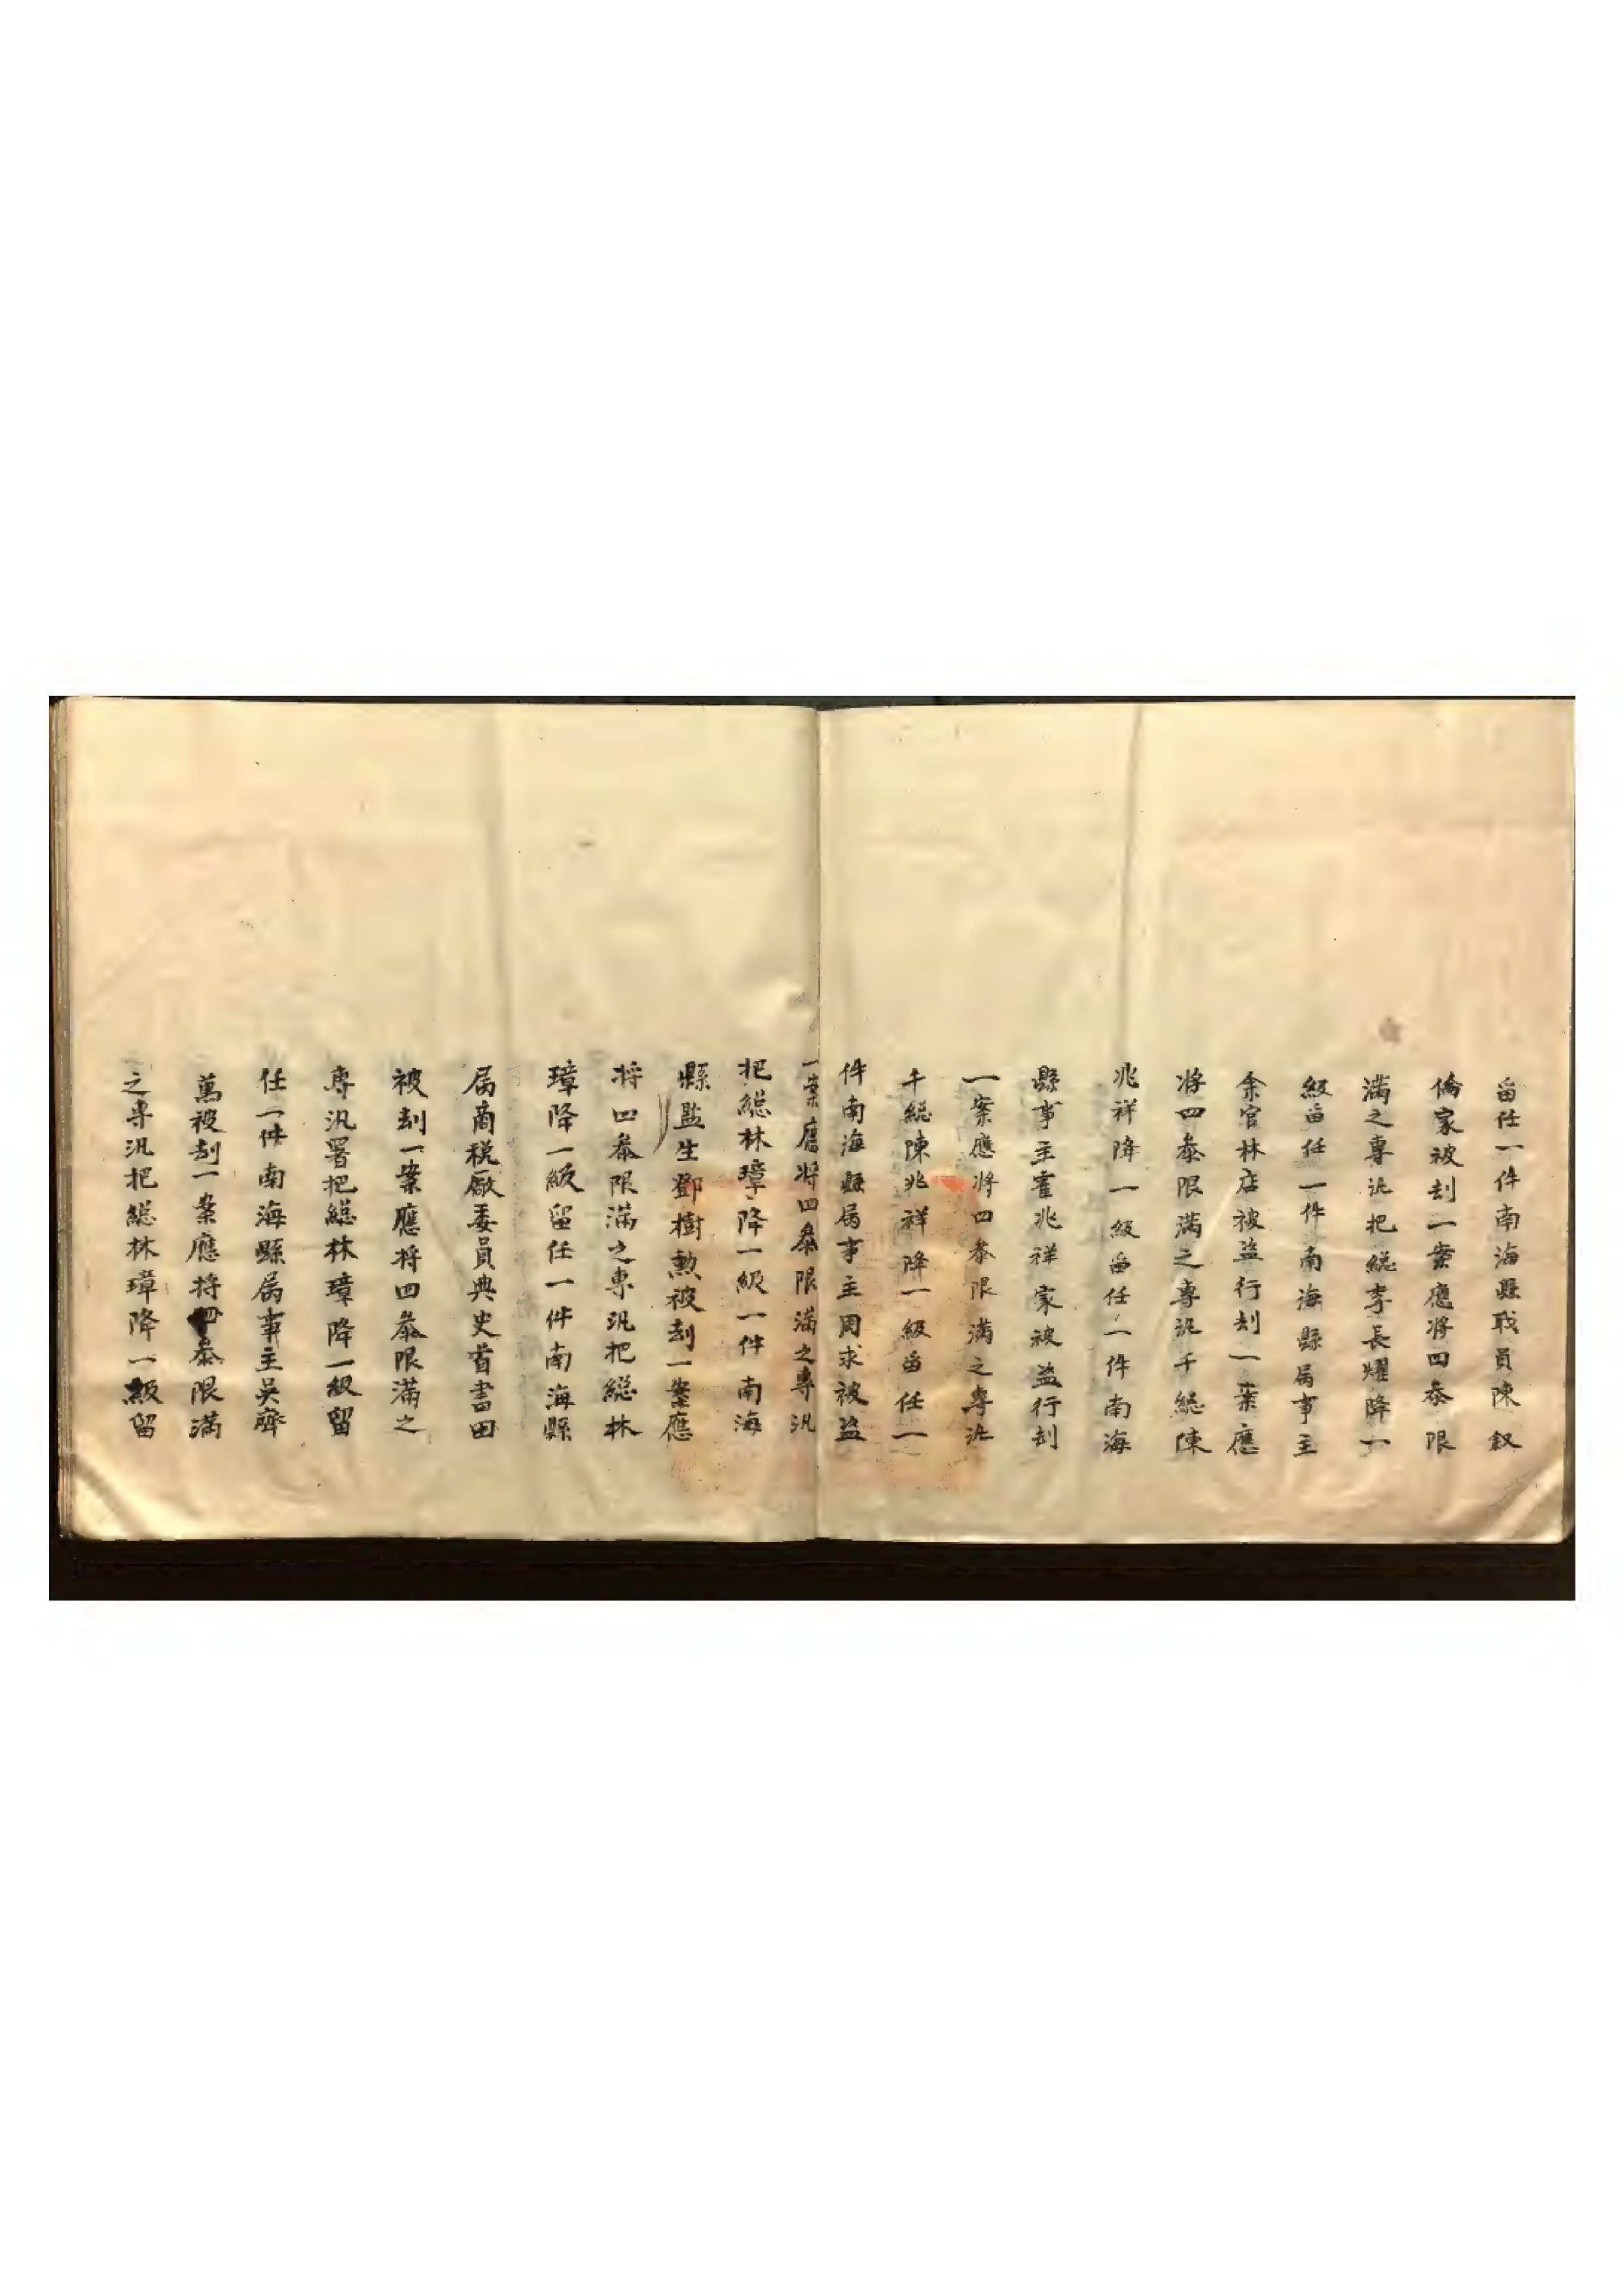 畄任一件南海縣職員陳叙
倫家被刦一案應將四叅限
滿之專汛把総李長耀降一
級畄任一件南海縣屬事主
余官林店被盜行刦一案應
將四叅限滿之專汛千総陳
兆祥降一級畄任一件南海
縣事主霍兆祥家被盜行刦
一案應將四叅限滿之專汛
千総陳兆祥降一級畄任一
件南海縣屬事主周求被盜
一案應將四叅限滿之專汛
把総林璋降一級一件南海
縣監生鄧樹勲被刦一案應
将四叅限滿之專汛把総林
璋降一級留任一件南海縣
屬商税厰委員典史首書田
被刦一案應将四叅限滿之
專汛署把総林璋降一級留
任一件南海縣屬事主吳齊
萬被刦一案應将四叅限滿
之專汛把総林璋降一級留